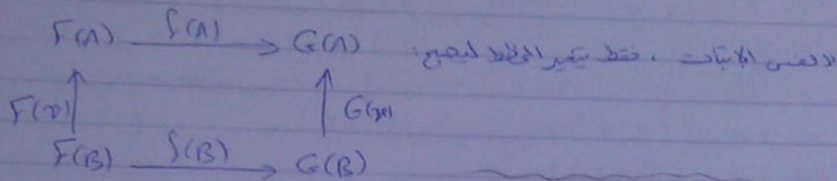 F(A) f(A) G(A) ونفس الإثبات ، فقط يتغير المخطط ليصبح:
F(x) G(x)
F(B) f(B) G(B)